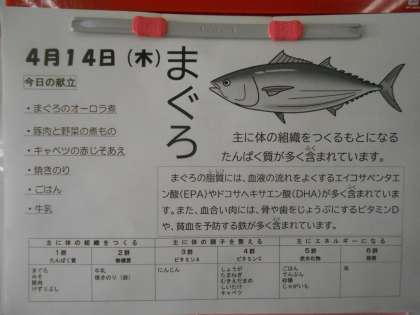 4月14日（木）
まぐろ
今日の献立
・まぐろのオーロラ煮
・豚肉と野菜の煮もの
・キャベツの赤じそあえ
・焼きのり
・ごはん
・牛乳
主に体の組織をつくるもとになる
たんぱく質が多く含まれています。
まぐろの脂質には、血液の流れをよくするエイコサペンタエ
ン酸〈EPA〉やドコサヘキサエン酸〈DHA〉が多く含まれていま
す。また、血合い肉には、骨や歯をじょうぶにするビタミンD
や、貧血を予防する鉄が多く含まれています。
主に体の組織をつくる 主に体の調子を整える 主にエネルギーになる
1群 2群 3群 4群 5群 6群
たんぱく質 無機質 ビタミンA ビタミンC 炭水化物 脂質
まぐろ 牛乳 にんじん しょうが ごはん
みそ 焼きのり たまねぎ でんぷん
豚肉 むきえだまめ 砂糖
けずりぶし しいたけ じゃがいも
キャベツ